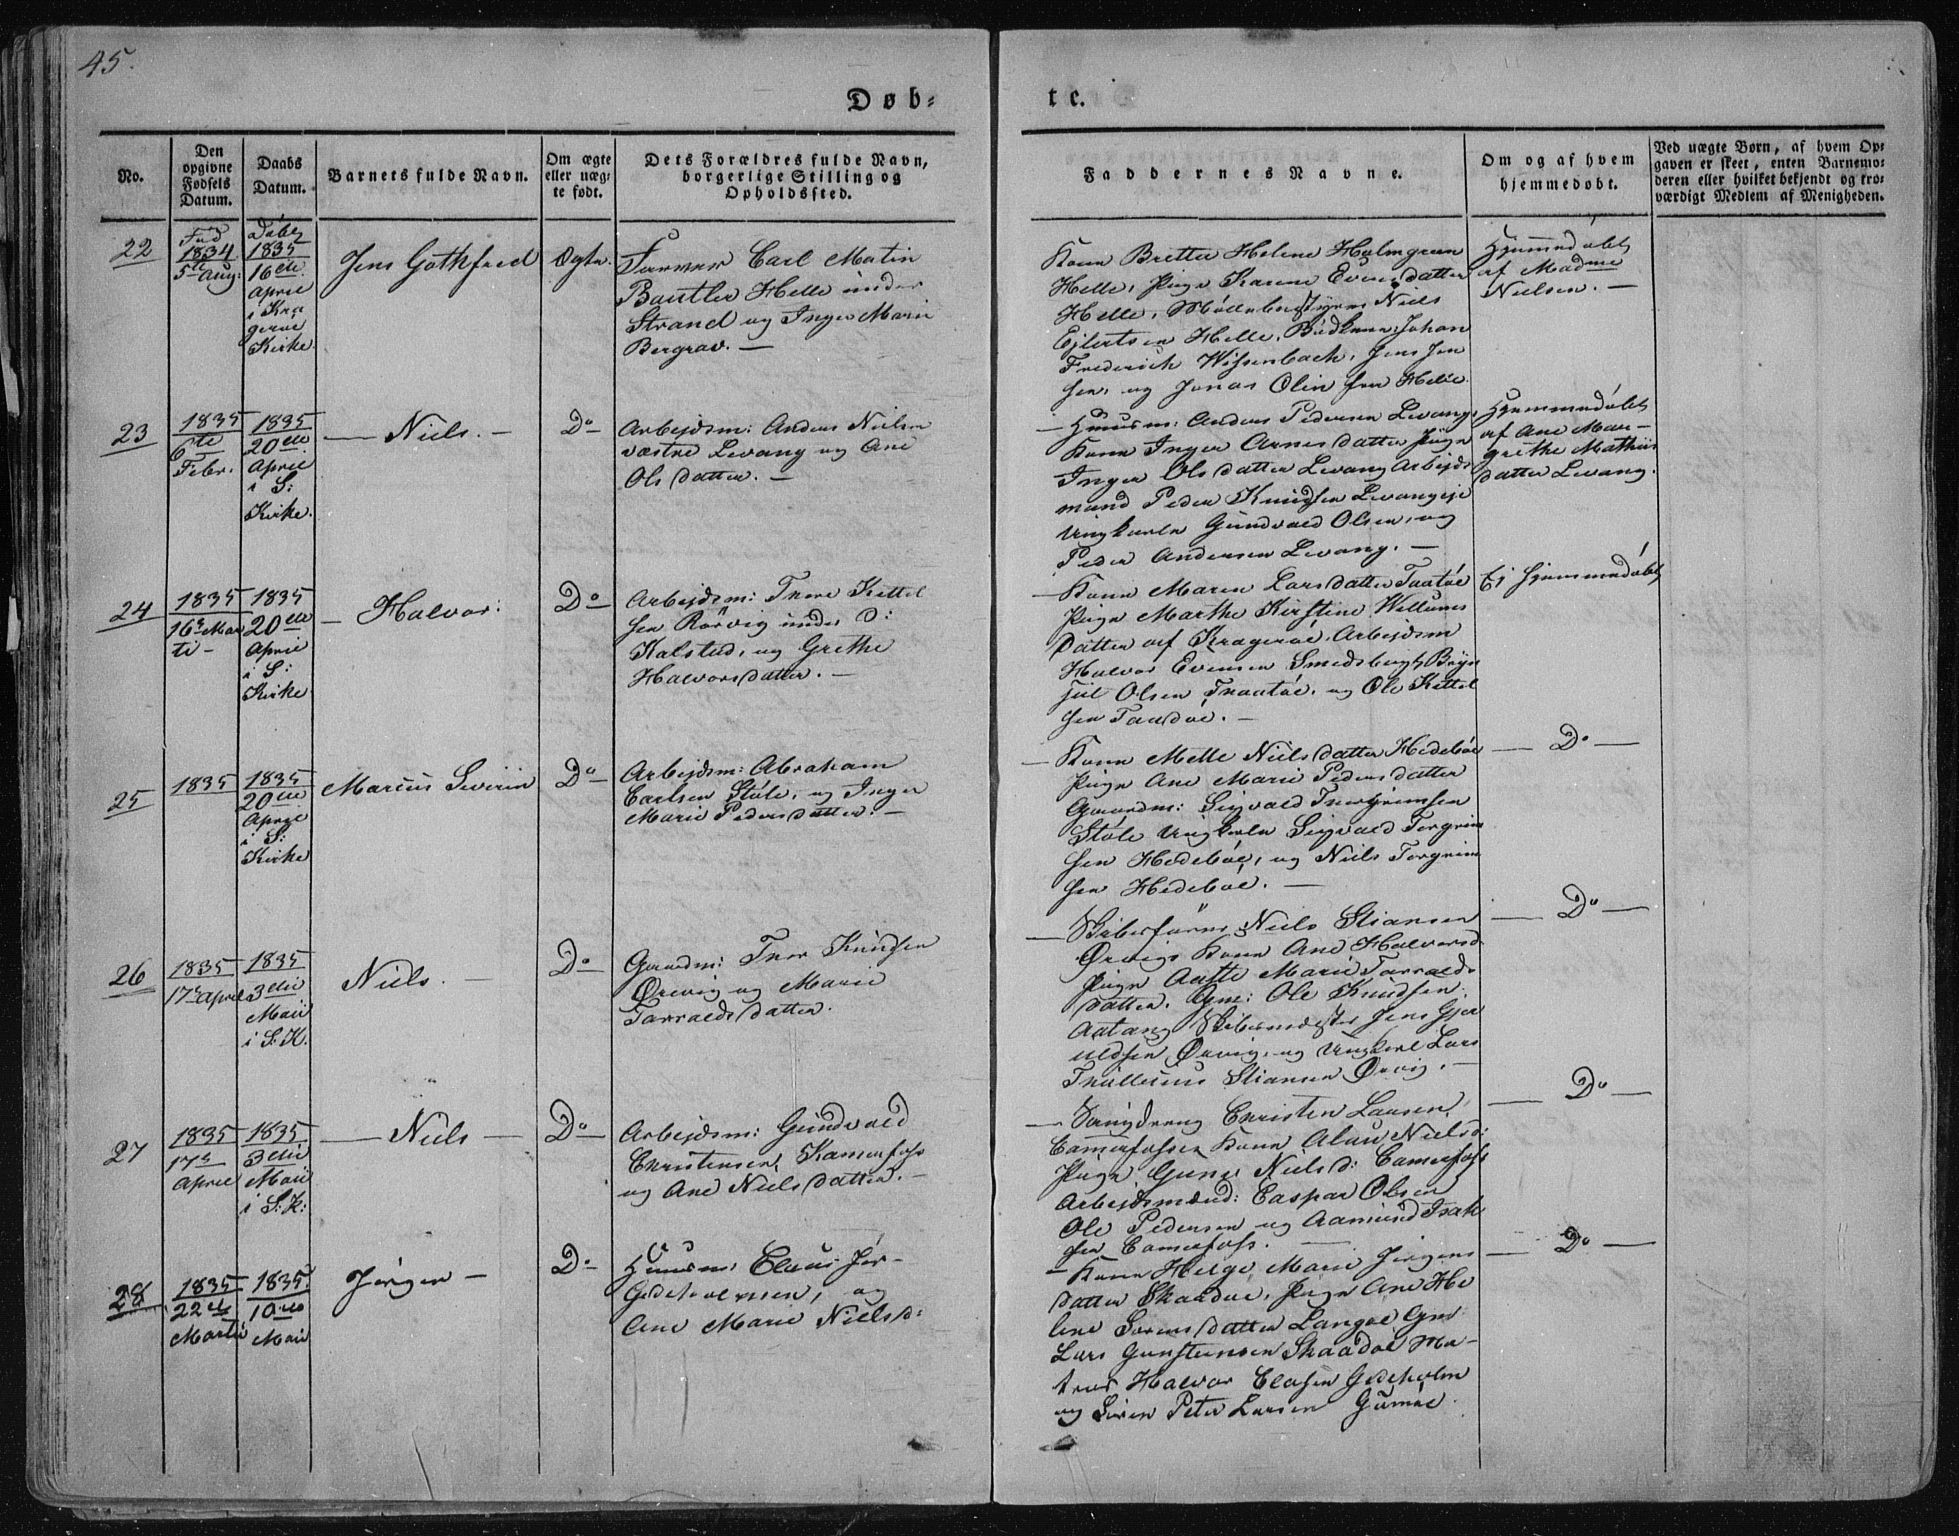 45.
Døb-
te.
No.
Den opgivne Fødsels Datum.
Daabs Datum.
Barnets fulde Navn.
Om ægte eller uægte født.
Dets Forældres fulde Navn, borgerlige Stilling og Opholdssted.
Faddernes Navne.
Om og af hvem hjemmedøbt.
Ved uægte Børn, af hvem Opgaven er skeet, enten Barnemoderen eller hvilket bekjendt og troværdigt Medlem af Menigheden.
22
Fød
1834
5te Aug:
Døbt
1835
16de
April
i Kra
gerøe
Kirke.
Jens Gothfred
Ægte.
Farver Carl Matin
Bautler Helle under
Strand og Inger Marie
Bergrav. —
Kone Bretta Helene Holmgreen
Helle, Pige Karen Evensdatter
Helle, Møllebestyrer Niels
Ejlertsen Helle, Bødker Johan
Frederich Wissenbach, Jens Jen
sen, og Jonas Olin fra Helle
Hjemmedøbt
af Madme
Nielsen. —
23
1835
6te
Febr.
1835
20de
April
i S:
Kirke.
— Niels. —
Do
Arbejdsm: Anders Nielsen
væstre Levang og Ane
Olsdatter. —
— Huusm: Anders Pedersen Levang,
Kone Inger Arnesdatter Pige
Inger Olsdatter Levang Arbejds
mand Peder Knudsen Levangeje
Ungkarle Gundvald Olsen, og
Peder Andersen Levang. —
Hjemmedøbt
af Ane Mar-
grethe Mathiis
datter Levang.
24
1835
16de Mar
ti —
1835
20de
April
i S:
Kirke
— Halvor.
Do
Arbejdsm: Thore Kittel
sen Rørvig under D:
Kalstad, og Grethe
Halvorsdatter. —
— Kone Maren Larsdatter Taatøe
Pige Marthe Kirstine Willums
datter af Kragerøe, Arbejdsm
Halvor Evensen Smedsbugt, Bryn
jul Olsen Traatøe, og Ole Kittel
sen Taadøe. —
Ej hjemmedøbt
25
1835
1835
20de
April
i S:
Kirke
Marcus Severin
Do
Arbejdsm: Abraham
Carlsen Støle, og Inger
Marie Pedersdatter. —
— Kone Mette Nielsdatter Hedebøe
Pige Ane Marie Pedersdatter
Gaardm: Sigvald Thorgrimsen
Støle Ungkarle Sigvald Torgrim
sen Hedebøe, og Niels Torgrim
sen Hedebøe. —
— Do —
26
1835
17de April
1835
3die
Maii
i S: K.
Niels. —
Do
Gaardm: Thor Knudsen
Ørvig og Marie
Tarraldsdatter.
— Skibsfører Niels Stiansen
Ørvig, Kone Ane Halvorsd.
Pige Aaste Marie Tarralds
datter. Gm: Ole Knudsen
Aatang Skibsmester Jens Gjer
uldsen Ørvig, og Ungkarl Lars
Thullesius Stiansen Ørvig. —
— Do —
27
1835
17de
April
1835
3die
Maii
i S: K:
— Niels —
Do
Arbejdsm: Gundvald
Christensen, Kamerfoss
og Ane Nielsdatter. —
— Christen Larsen,
Camerfossen Kone Nielsd:
Pige Nielsd: Camerfoss
Arbejdsmænd: Caspar Olsen
Ole Pedersen og Aamund Isak
sen Camerfoss. —
— Do —
28
1835
22de
Martii
1835
10de
Maii
Jørgen —
Do
Huusm: Claus Jør-
Gideholmen, og
Ane Marie Nielsd:
— Kone Helge Marie Jørgens
datter Skaadøe, Pige Ane He
lene Sørensdatter Langøe Gm:
Lars Gunstensen Skaadøe Ma-
tros Halvor Clasen Gideholm
og Søren Peter Larsen Gumøe.
— Do —